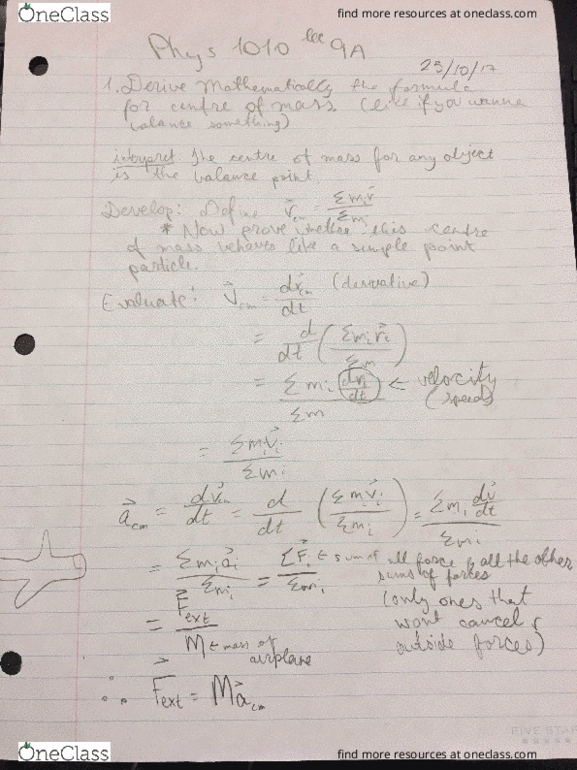 OneClass
find more resources at oneclass.com
Phys 1010 lec 9A
25/10/17
1. Derive Mathematically the formula
for centre of mass (like if you wanna
balance something)
interpret the centre of mass for any object
is the balance point
Develop: Define r⃗cm = Σmir⃗ / Σm
* Now prove whether this centre
of mass behaves like a simple point
particle.
Evaluate: v⃗cm = dr⃗cm/dt (derivative)
= d/dt (Σmir⃗i / Σm)
= Σmi (dri/dt) / Σm ← velocity (speed)
= Σmiv⃗i / Σmi
a⃗cm = dv⃗cm/dt = d/dt (Σmv⃗i / Σmi) = Σmi dv⃗/dt / Σmi
= Σmia⃗i / Σmi = ΣF⃗i / Σmi ← sum of all force & all the other
sums of forces
(only ones that
wont cancel &
outside forces)
= F⃗ext / M ← mass of
airplane
∴ F⃗ext = Ma⃗cm
FIVE STAR
OneClass
find more resources at oneclass.com